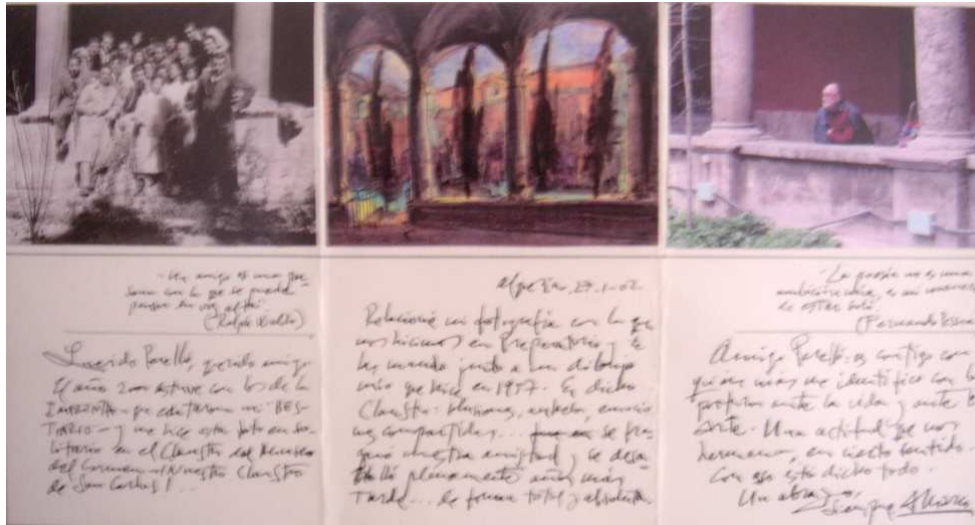 Un amigo es una per-
sona con la que se puede
pensar en voz alta
(Ralph Waldo)
Querido Porello, querido amigo:
El año 2000 estuve con los de la
IMPRENTA - que editaron mi BES-
TIARIO - y me hice esta foto en so-
litario en el Claustro del Museo
del Carmen. ¡Nuestro Claustro
de San Carlos!...
27-1-02
Relacioné mi fotografía con la que
nos hicimos en Preparatorio y te
las mando junto a un dibujo
mío que hice en 1957. En dicho
Claustro. Ilusiones,
compartidas... se fra-
guó nuestra amistad y se desa-
rrolló plenamente años más
tarde... de forma total y absoluta.
"La poesía no es una
ambición mía, es mi manera
de estar solo"
(Fernando Pessoa
Amigo Porello: es contigo con
quien más me identifico con
postura ante la vida y ante el
Arte. Una actitud que nos
hermana, en cierto sentido.
Con eso está dicho todo.
Un abrazo,
siempre